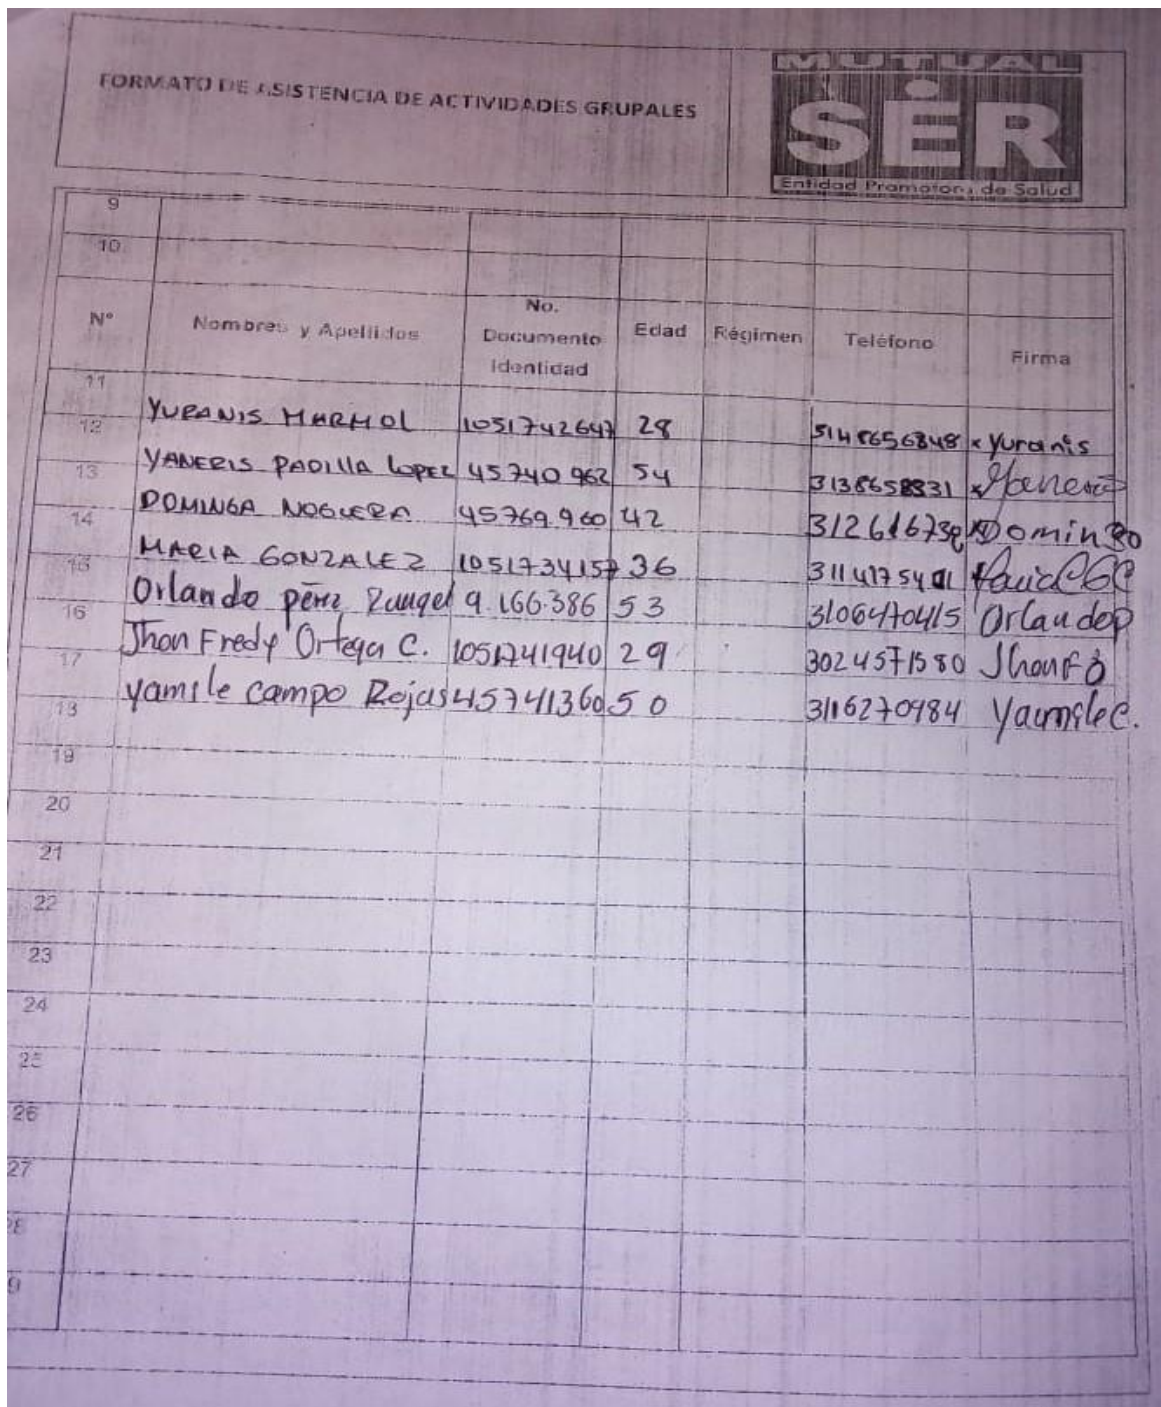 FORMATO DE ASISTENCIA DE ACTIVIDADES GRUPALES
MUTUAL
SER
Entidad Promotora de Salud
9
10
N° Nombres y Apellidos No. Documento Identidad Edad Régimen Teléfono Firma
11
12 YURANIS MARMOL 1051742647 28 5148656848 x Yuranis
13 YANERIS PADILLA LOPEZ 45740962 54 3138658831
14 DOMINGA NOGUERA 45769.960 42
15 MARIA GONZALEZ 1051734157 36
16 Orlando pérez Rangel 9.166.386 53 3106470415 Orlandop
17 Jhon Fredy Ortega C. 1051741940 29 3024571580
18 yamile campo Rojas 45741360 50 3116270984 Yamile C.
19
20
21
22
23
24
25
26
27
28
9